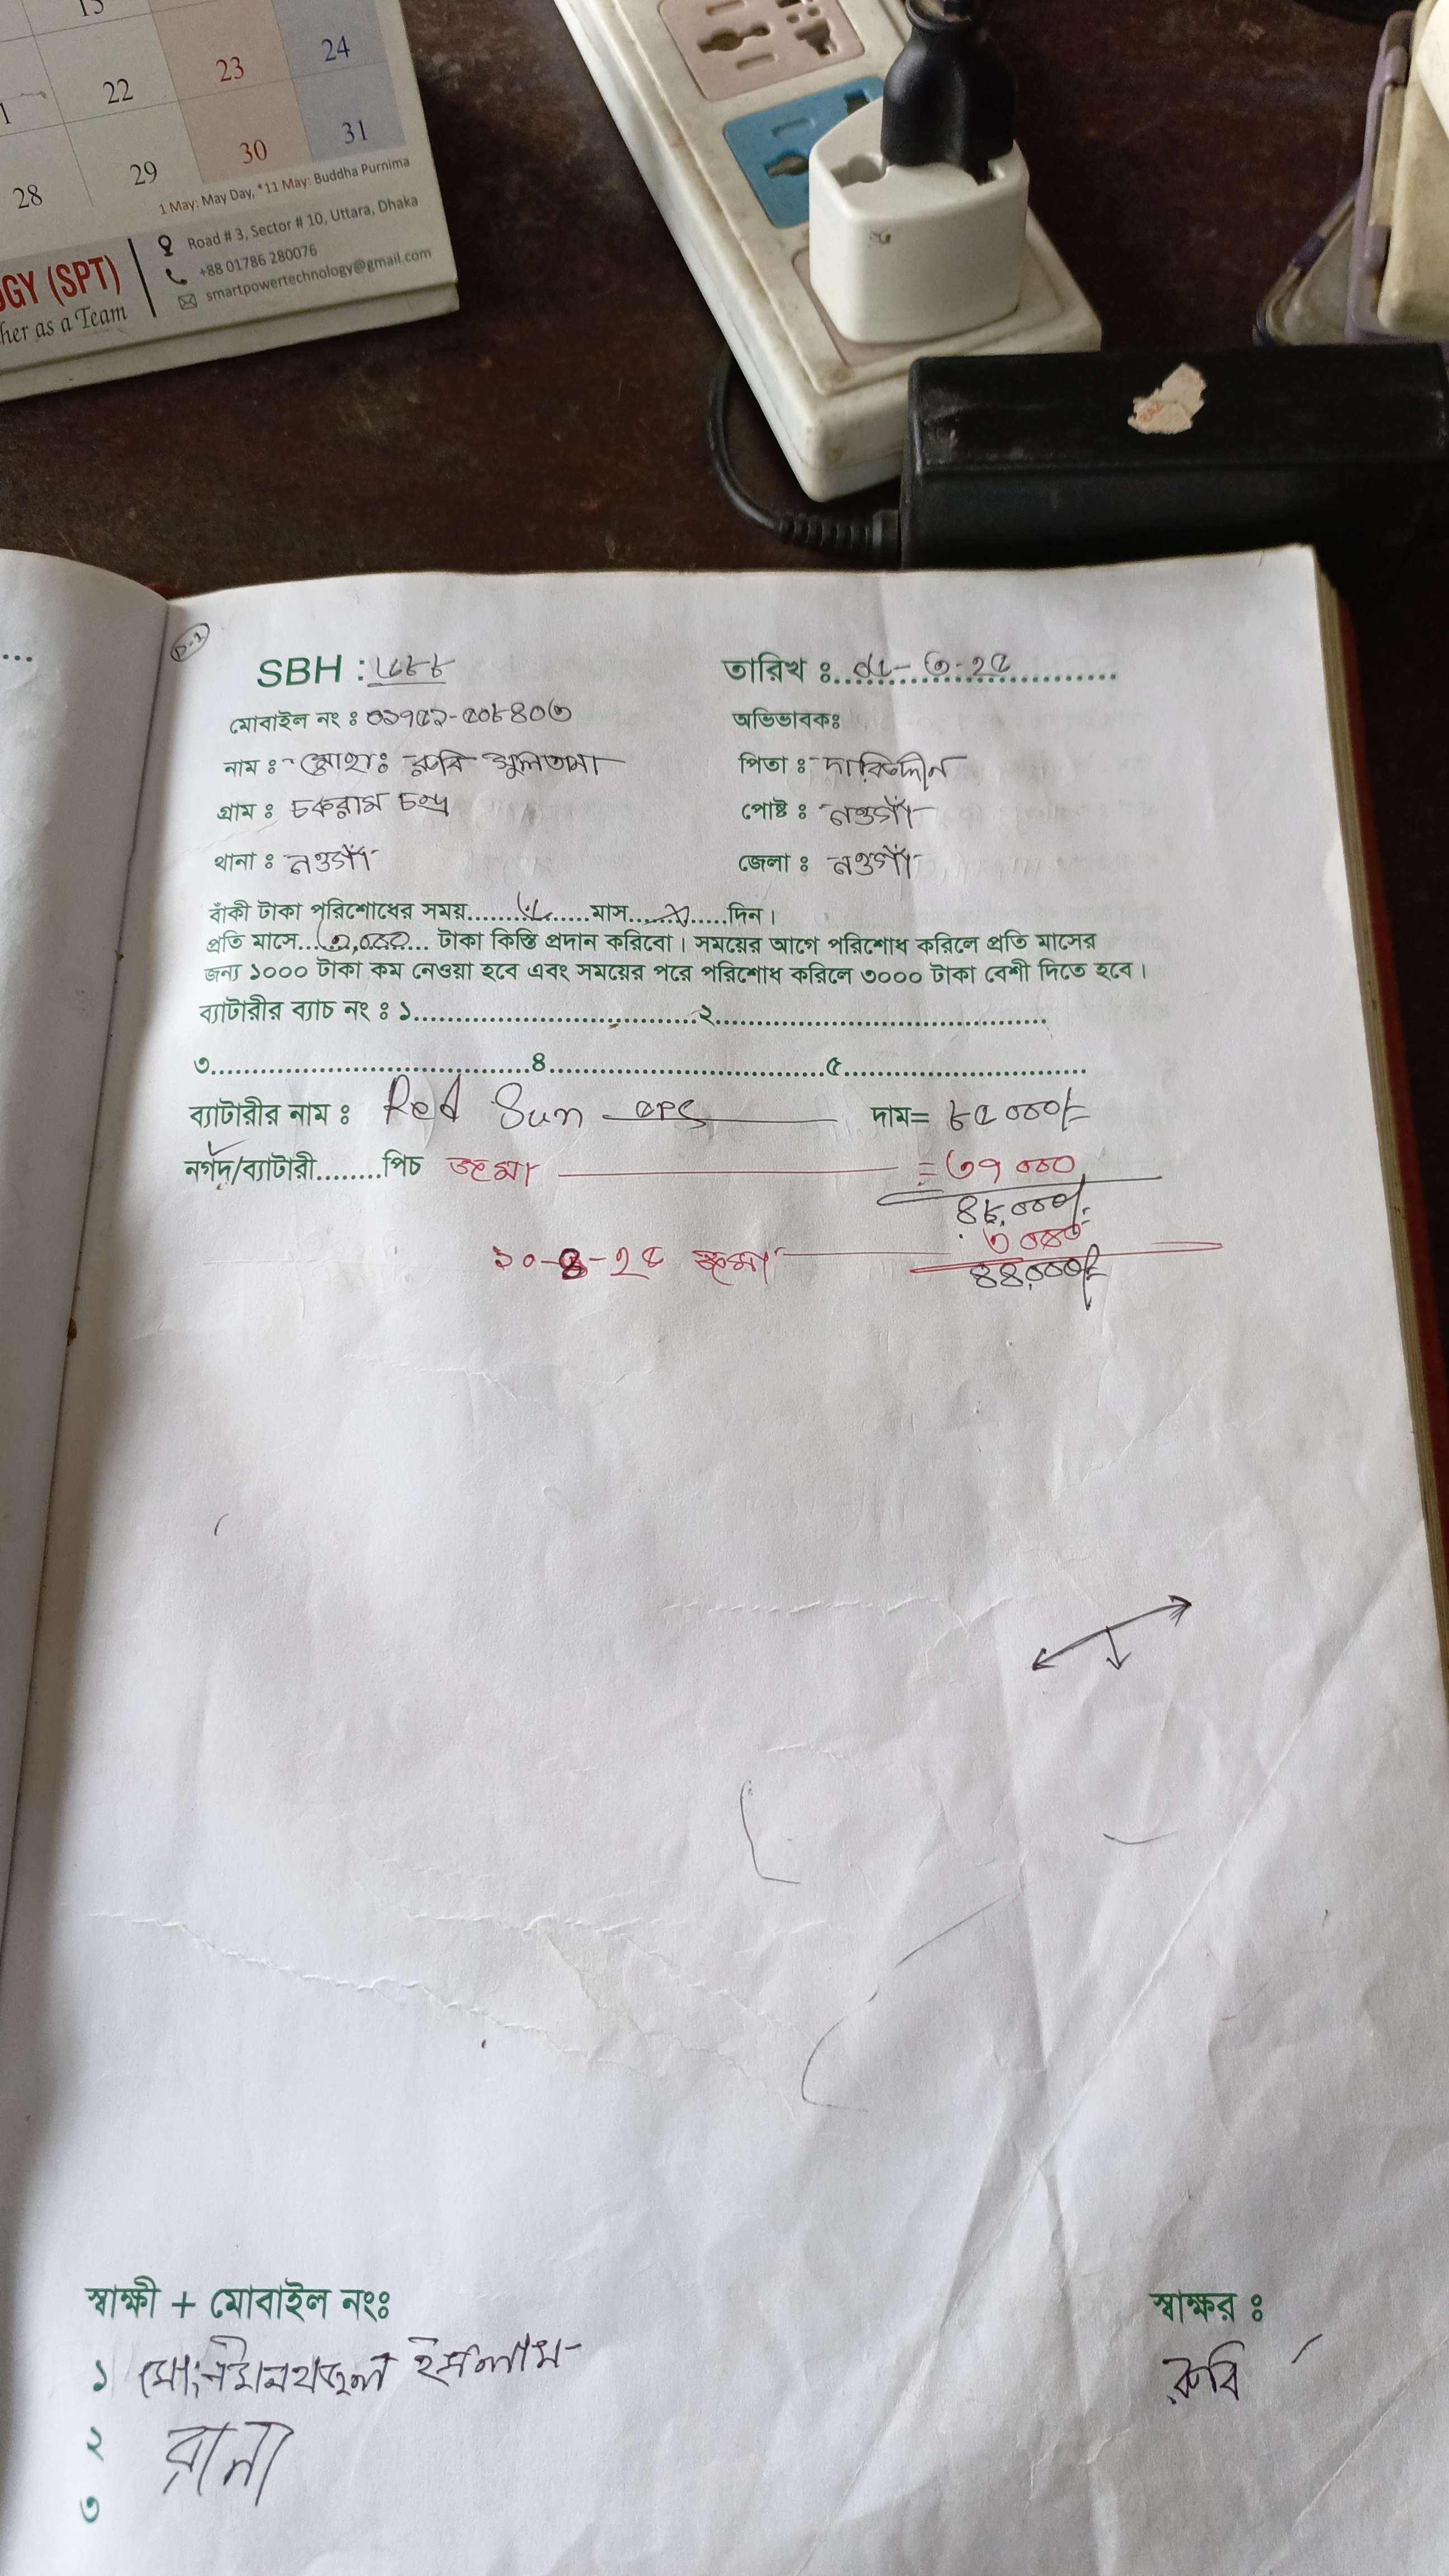 15
22 23 24
28 29 30 31
1 May: May Day, *11 May: Buddha Purnima
OGY (SPT)
her as a Team
Road # 3, Sector # 10, Uttara, Dhaka
+88 01786 280076
smartpowertechnology@gmail.com
SBH :
তারিখ ঃ
মোবাইল নং ঃ ০১৭৫২-৫০৮৪০৩
অভিভাবকঃ
নাম ঃ মোছাঃ রুবি সুলতানা
পিতা ঃ
গ্রাম ঃ চকরাম চন্দ্র
পোষ্ট ঃ নওগাঁ
থানা ঃ নওগাঁ
জেলা ঃ নওগাঁ
বাঁকী টাকা পরিশোধের সময়................মাস............দিন।
প্রতি মাসে...৩,০০০... টাকা কিস্তি প্রদান করিবো। সময়ের আগে পরিশোধ করিলে প্রতি মাসের
জন্য ১০০০ টাকা কম নেওয়া হবে এবং সময়ের পরে পরিশোধ করিলে ৩০০০ টাকা বেশী দিতে হবে।
ব্যাটারীর ব্যাচ নং ঃ ১........................................২...............................................
৩..............................................৪.......................................৫..................................
ব্যাটারীর নাম ঃ Red Sun দাম= ৮৫০০০/-
নগদ/ব্যাটারী........পিচ জমা = ৩৭০০০
৪৮,০০০/-
১০-৪-২৫ জমা
৪৪,০০০/-
স্বাক্ষী + মোবাইল নংঃ
স্বাক্ষর ঃ
১ ইসলাম
রুবি
২ রানা
৩